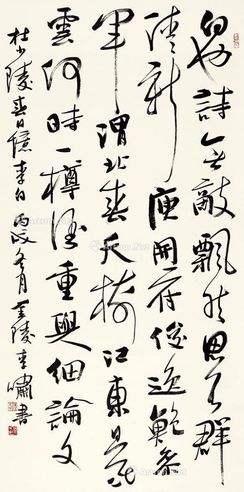 白也詩无敵飄然思不群
清新庾開府俊逸鮑參
軍渭北春天樹江東日暮
雲何時一樽酒重與細論文
杜少陵春日憶李白丙戌冬月金陵李嘯書